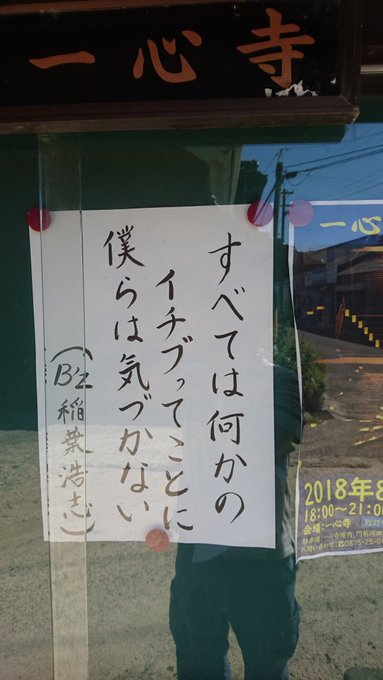 一心寺
すべては何かの
イチブってことに
僕らは気づかない
(B'z 稲葉浩志)
一心
2018年8
18:00～21:00
会場:一心寺